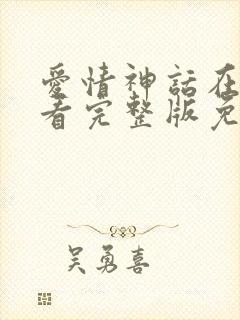 愛情神話在
看完整版免
吳勇喜